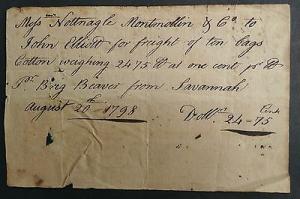 Mess.rs Nottnagle Montmollin & Co. to
John Elliott for freight of ten bags
Cotton weighing 2475 lb at one cent pr. lb
Pr. Brig Beaver from Savannah
Cents
august 20th 1798 Dolls. 24-75